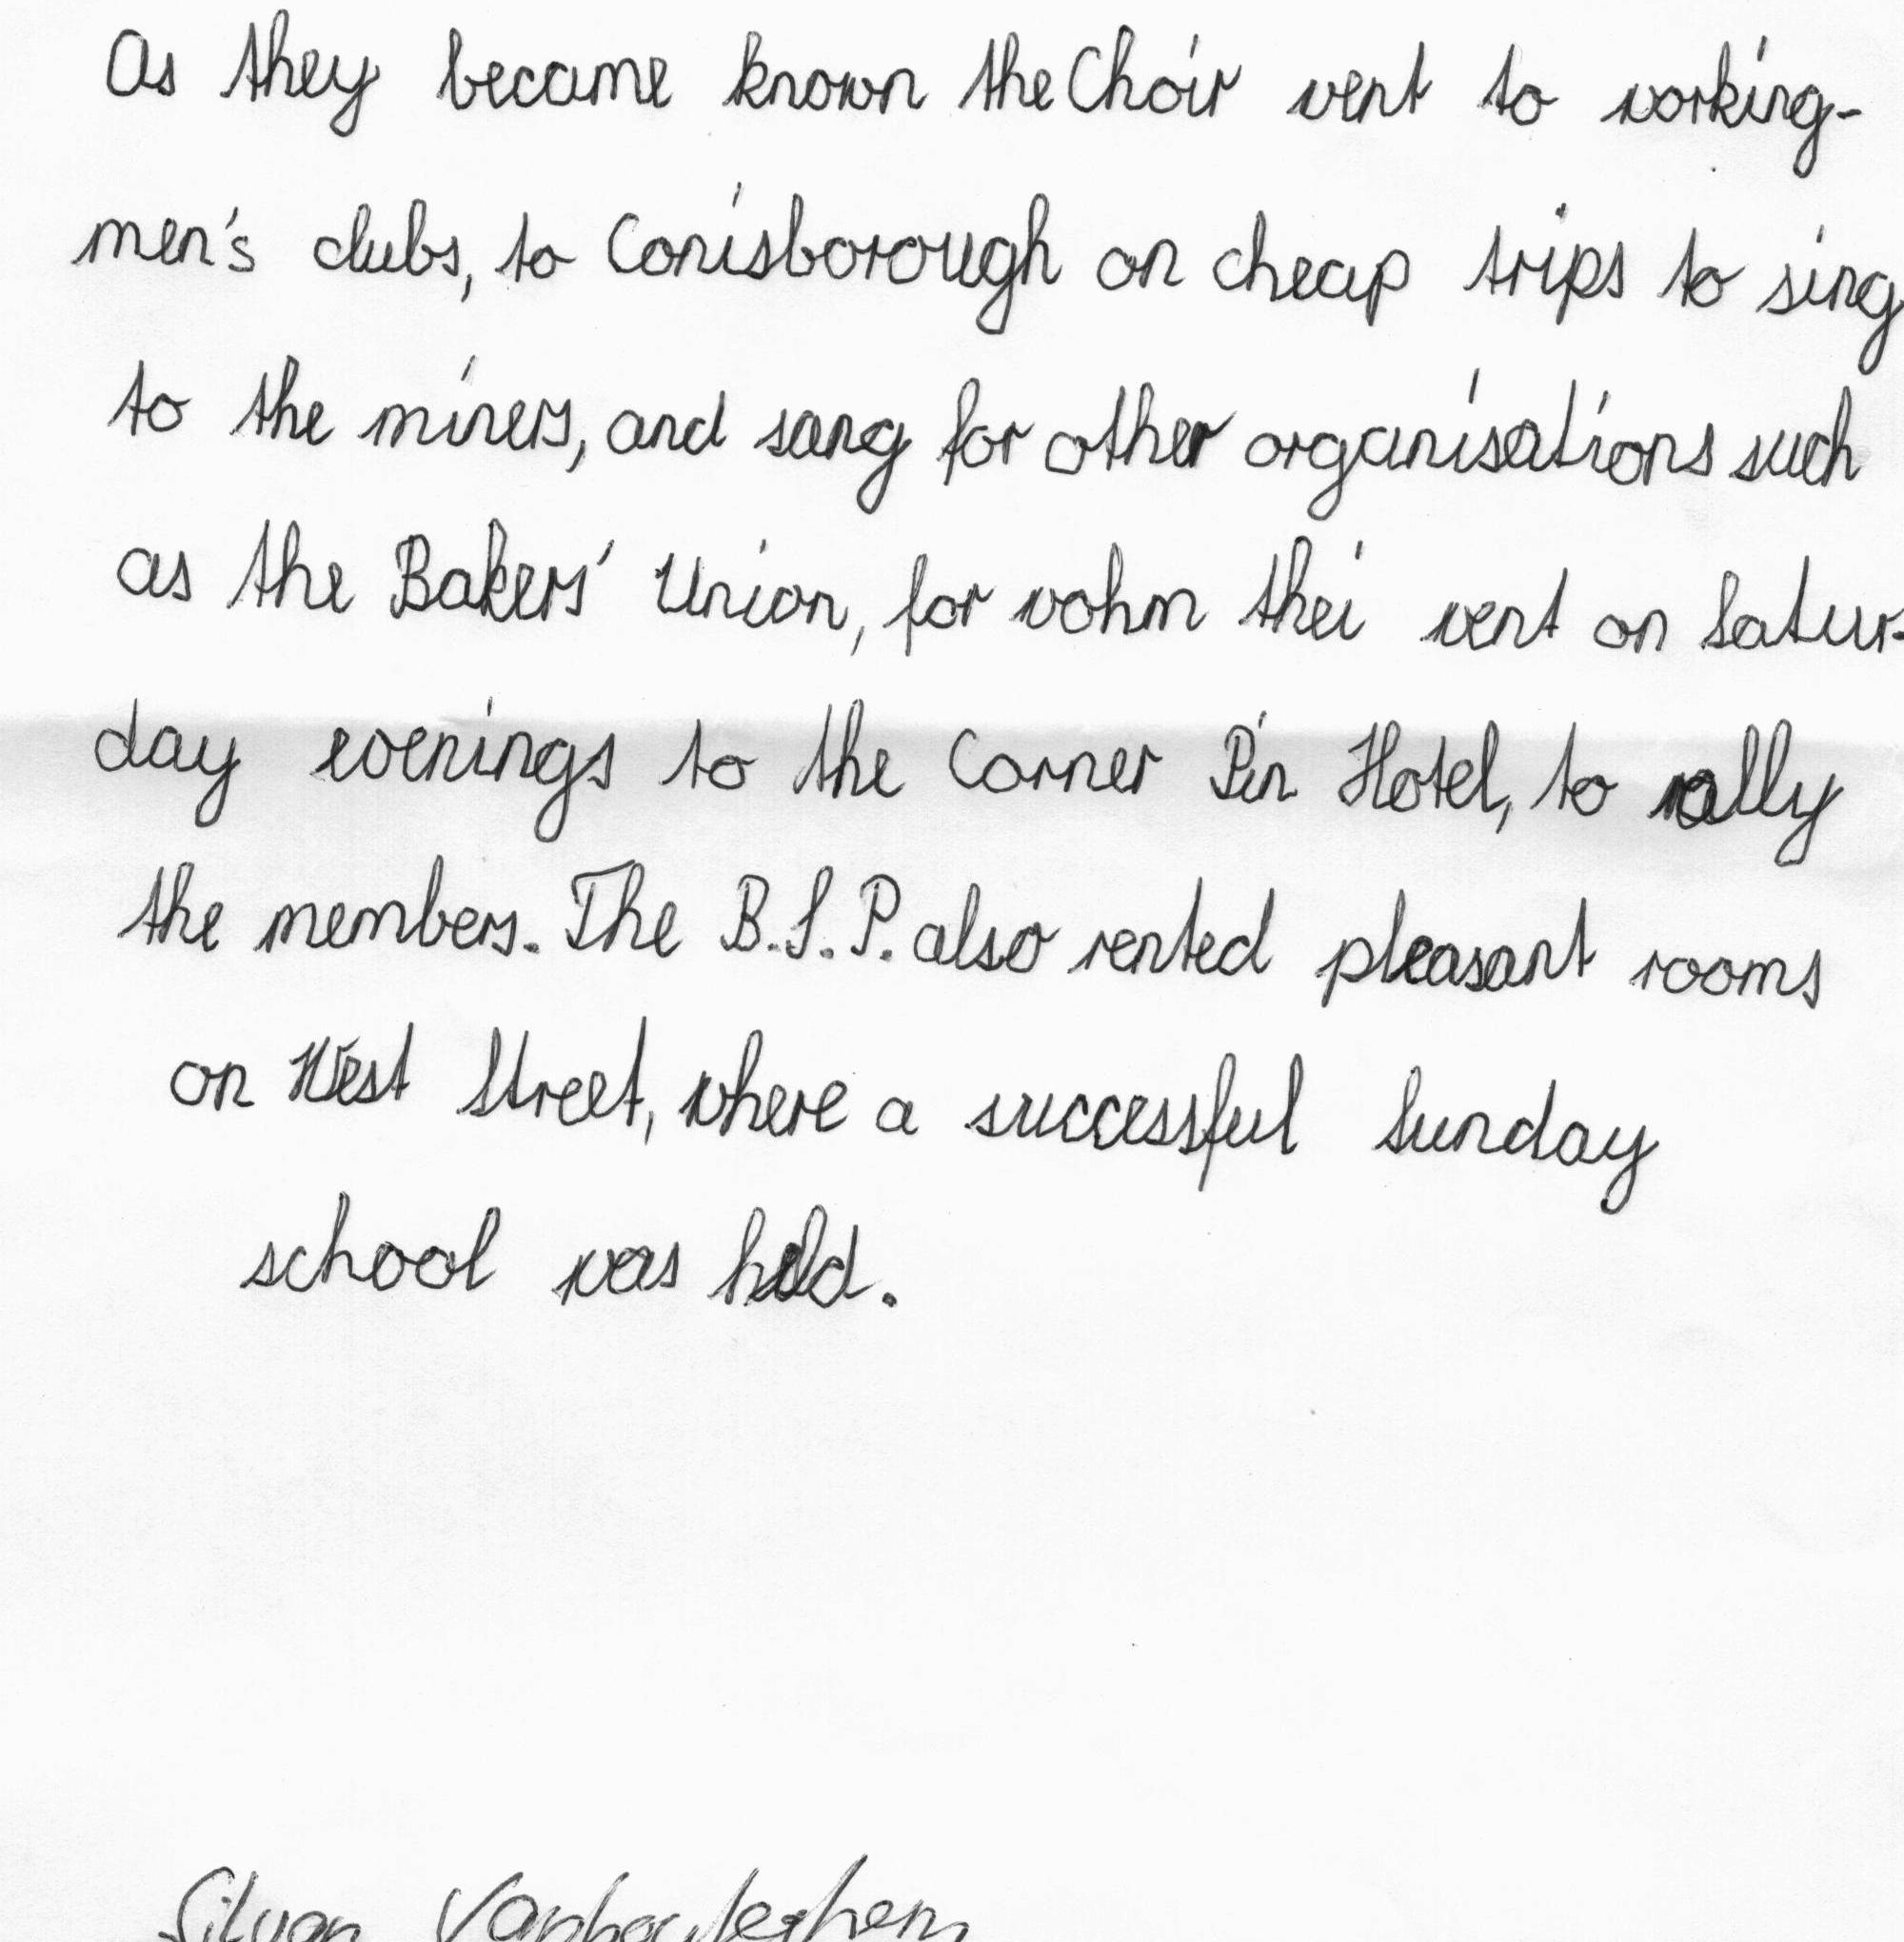 As they became known the Choir went to working-
men's clubs, to Conisborough on cheap trips to sing
to the miners, and sang for other organisations such
as the Bakers' Union, for wohm thei went on Satur-
day evenings to the Corner Pin Hotel, to rally
the members. The B.S.P. also rented pleasant rooms
on West Street, where a successful Sunday
school was held.
Silvan